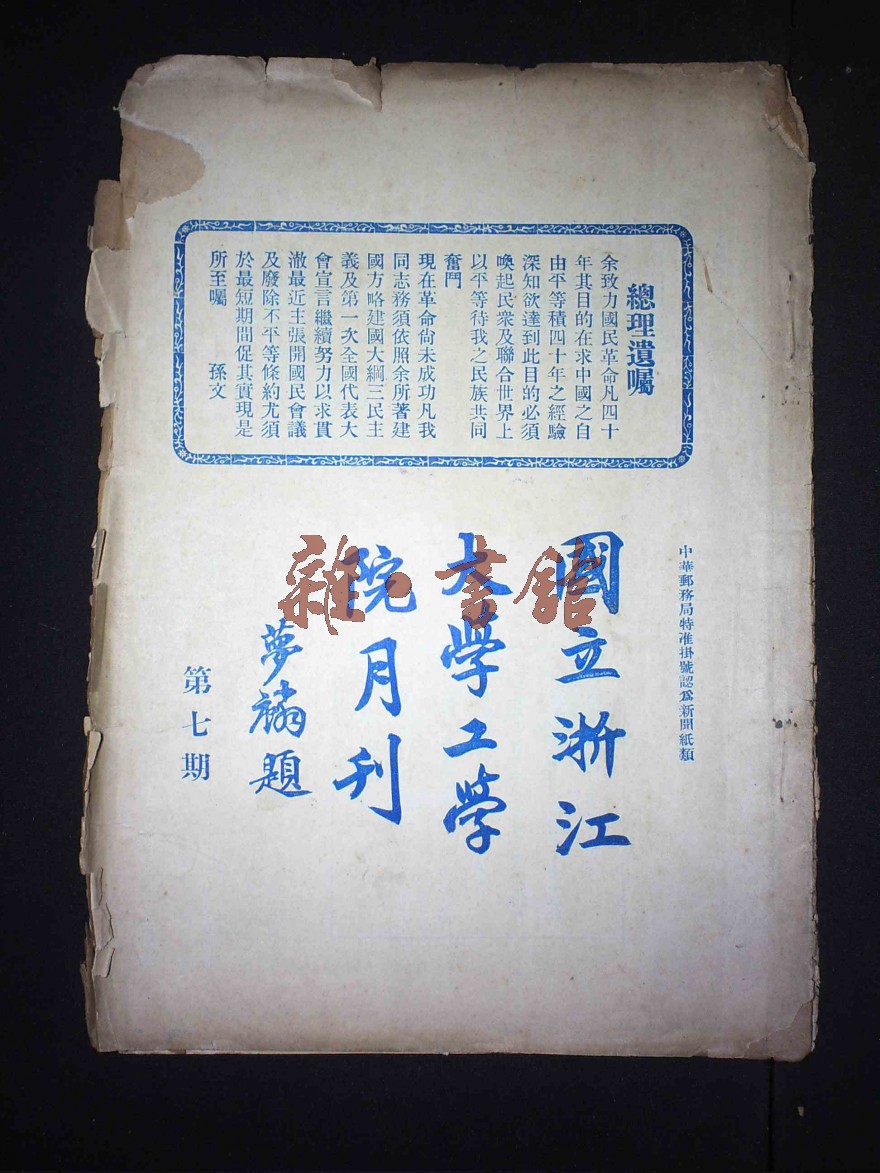 總理遺囑
余致力國民革命凡四十
年其目的在求中國之自
由平等積四十年之經驗
深知欲達到此目的必須
喚起民衆及聯合世界上
以平等待我之民族共同
奮鬥
現在革命尙未成功凡我
同志務須依照余所著建
國方略建國大綱三民主
義及第一次全國代表大
會宣言繼續努力以求貫
澈最近主張開國民會議
及廢除不平等條約尤須
於最短期間促其實現是
所至囑 孫文
中華郵務局特准掛號認爲新聞紙類
國立浙江
大學工學
院月刊
夢麟題
第七期
雜·書館